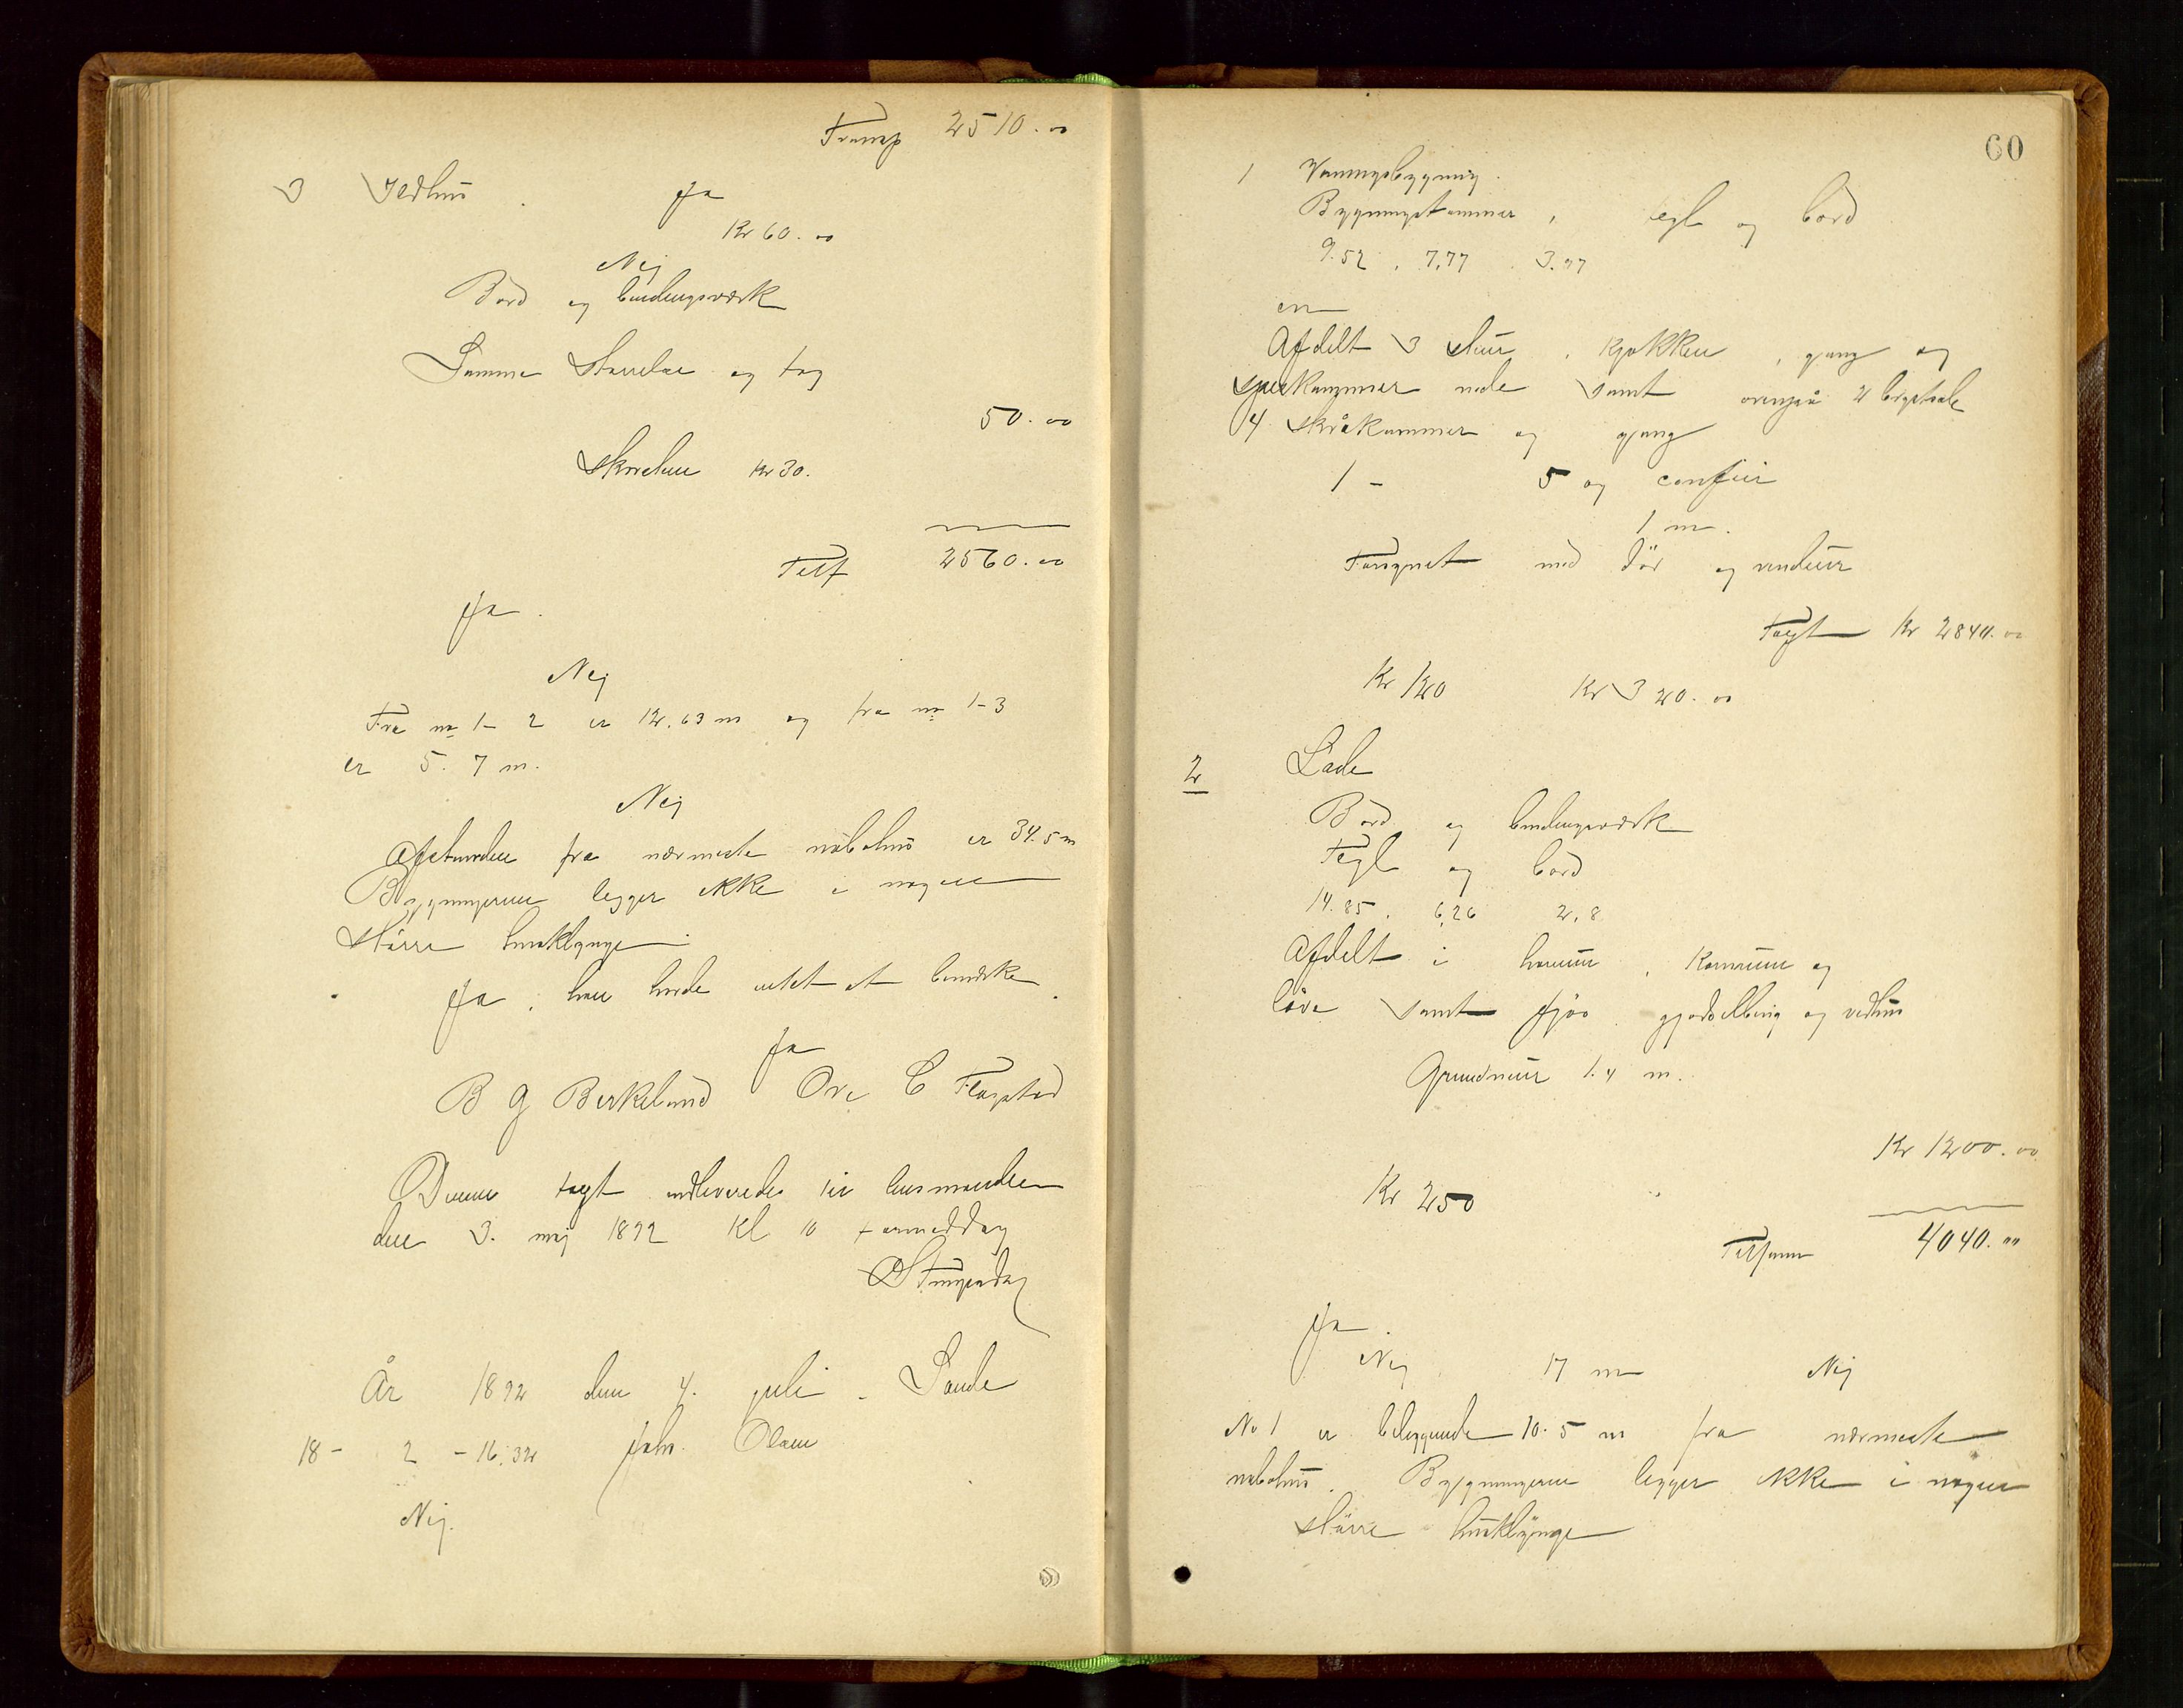 Transp 2510.00
3 Ildhus Ja
Kr 60.00
Nej
Bord og bindingsværk
Samme Størrelse og tag
50.00
Skorsten Kr 30.
Tils 2560.00
Ja.
Nej
Fra no 1-2 er 12.63 m og fra no 1-3
er 5.7 m.
Nej
Afstanden fra nærmeste nabohus er 34.5 m
Bygningerne legger ikke i nogen
större husklynge.
Ja, han havde intet at bemærke.
Ja
B G Berkeland Ove C Flagstad
Denne taxt udleveredes
den 3. maj 1892 Kl 10 formiddag
År 1892 den 4. juli - Sande
18 - 2 - 16.32 Johs. Olsen
Nej.
60
1 Vaningsbygning.
Bygningstømmer, tegl og bord
9.52, 7.77 3.77
en
Afdelt 3 stuer, kjøkken, gang og
spiskammer nede samt ovenpå 2
4 skråkammer og gang
1 - 5 og comfur
1 m.
Forsynet med dör og vinduer
Taxt Kr 2840.00
Kr 120 Kr 320.00
2 Lade
Bord og bindingsværk
Tegl og bord
14.85, 6,26 2,8
Afdelt i høerum, kornrum og
löve samt fjös, gjødselbing og vedhus
Grundmur 1.4 m.
Kr 1200.00
Kr 250
Tilsam 4040.00
Ja.
Nej, 17 m Nej
No 1 er beleggende 10.5 m fra nærmeste
nabohus. Bygningerne legger ikke i nogen
större husklynge